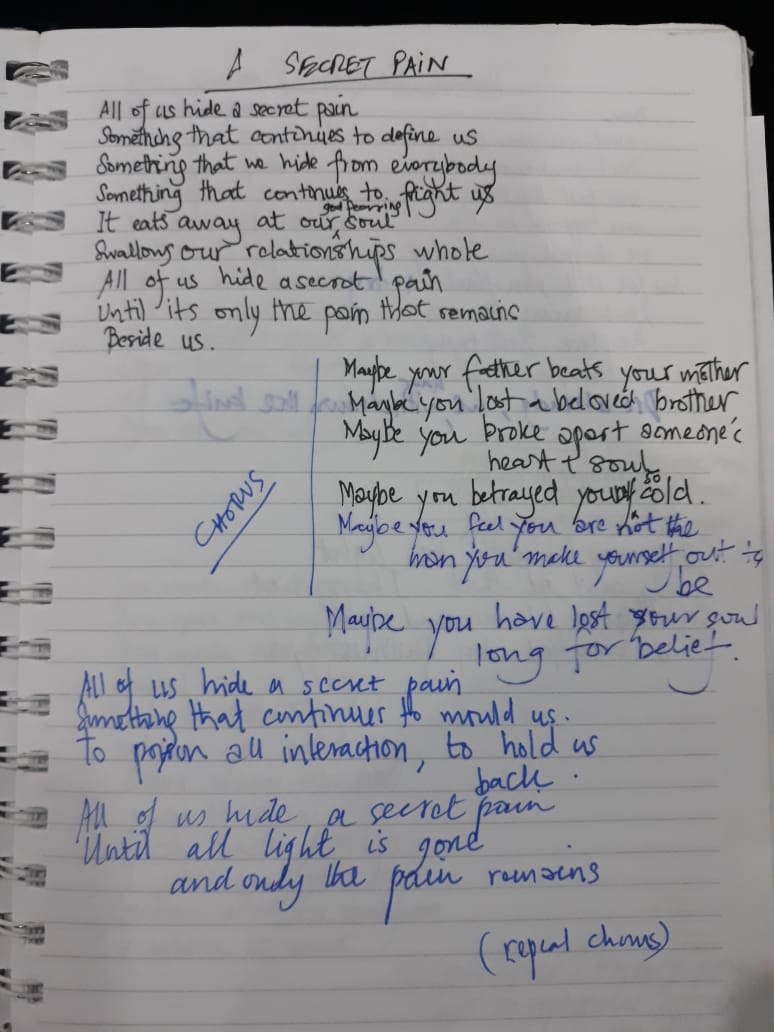 A SECRET PAIN
All of us hide a secret pain
Something that continues to define us
Something that we hide from everybody
Something that continues to fright us
It eats away at our god fearing soul
Swallows our relationships whole
All of us hide a secret pain
Until its only the pain that remains
Beside us.
Maybe your father beats your mother
Maybe you lost a beloved brother
Maybe you broke apart someone's
heart & soul
Maybe you betrayed your so cold.
CHORUS
Maybe you feel you are not the
man you make yourself out to
be
Maybe you have lost your soul
long for belief.
All of us hide a secret pain
Something that continues to mould us.
To poison all interaction, to hold us
back.
All of us hide a secret pain
Until all light is gone
and only the pain remains
(repeat chorus)